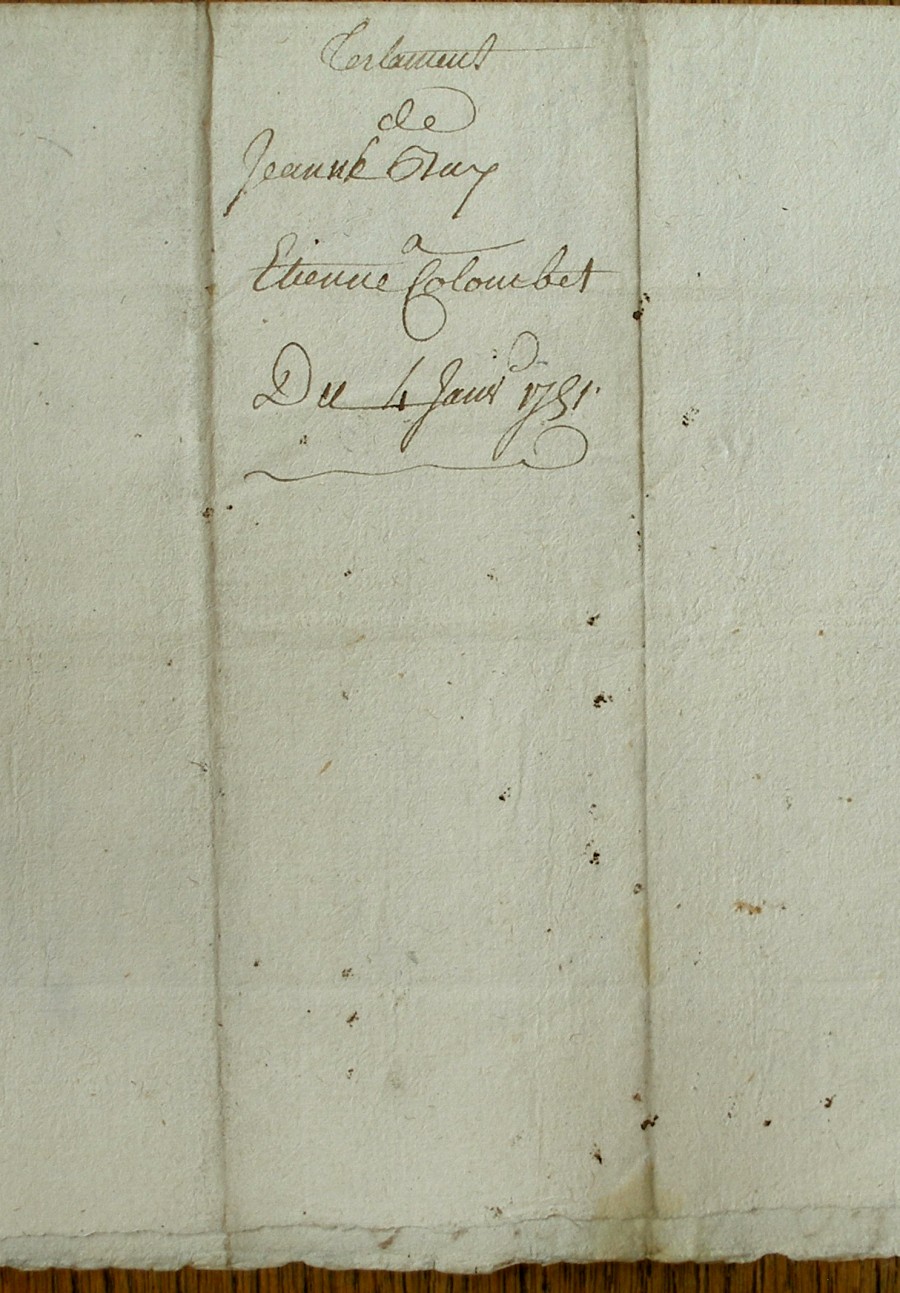 Testament
de
Jeanne
a
Etienne Colombet
Du 4 Janvr 1751